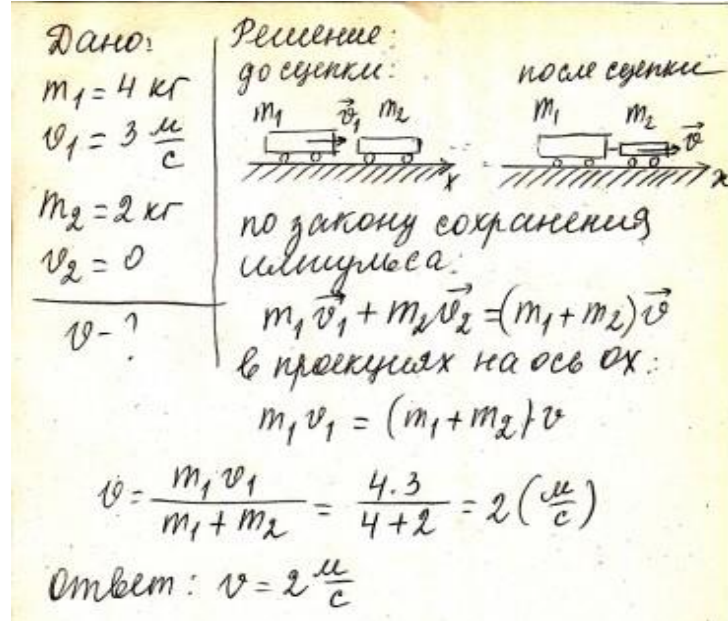 Дано:
m₁ = 4 кг
v₁ = 3 м/с
m₂ = 2 кг
v₂ = 0
v - ?
Решение:
до сцепки:
m₁ v⃗₁ m₂
x
после сцепки
m₁ m₂ v⃗
x
по закону сохранения
импульса:
m₁v⃗₁ + m₂v⃗₂ = (m₁ + m₂)v⃗
в проекциях на ось ОХ:
m₁v₁ = (m₁ + m₂)v
v = m₁v₁ / (m₁ + m₂) = 4·3 / (4+2) = 2 (м/с)
Ответ: v = 2 м/с